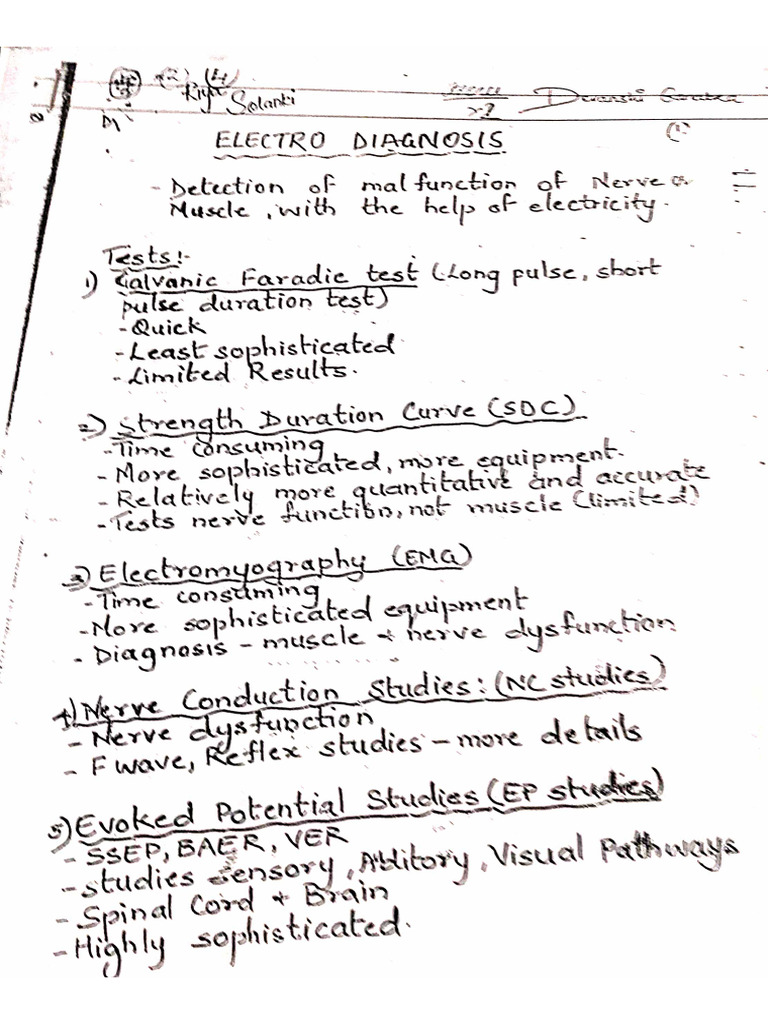 Riya Solanki
Devanshi
(1)
ELECTRO DIAGNOSIS
- Detection of malfunction of Nerve or
Muscle, with the help of electricity.
Tests:-
1) Galvanic Faradic test (Long pulse, short
pulse duration test)
- Quick
- Least sophisticated
- Limited Results.
2) Strength Duration Curve (SDC)
- Time consuming
- More sophisticated, more equipment.
- Relatively more quantitative and accurate
- Tests nerve function, not muscle (limited)
3) Electromyography (EMG)
- Time consuming
- More sophisticated equipment
- Diagnosis - muscle + nerve dysfunction
4) Nerve Conduction Studies: (NC studies)
- Nerve dysfunction
- F wave, Reflex studies - more details
5) Evoked Potential Studies (EP studies)
- SSEP, BAER, VER
- studies Sensory, Auditory, Visual Pathways
- Spinal Cord + Brain
- Highly sophisticated.